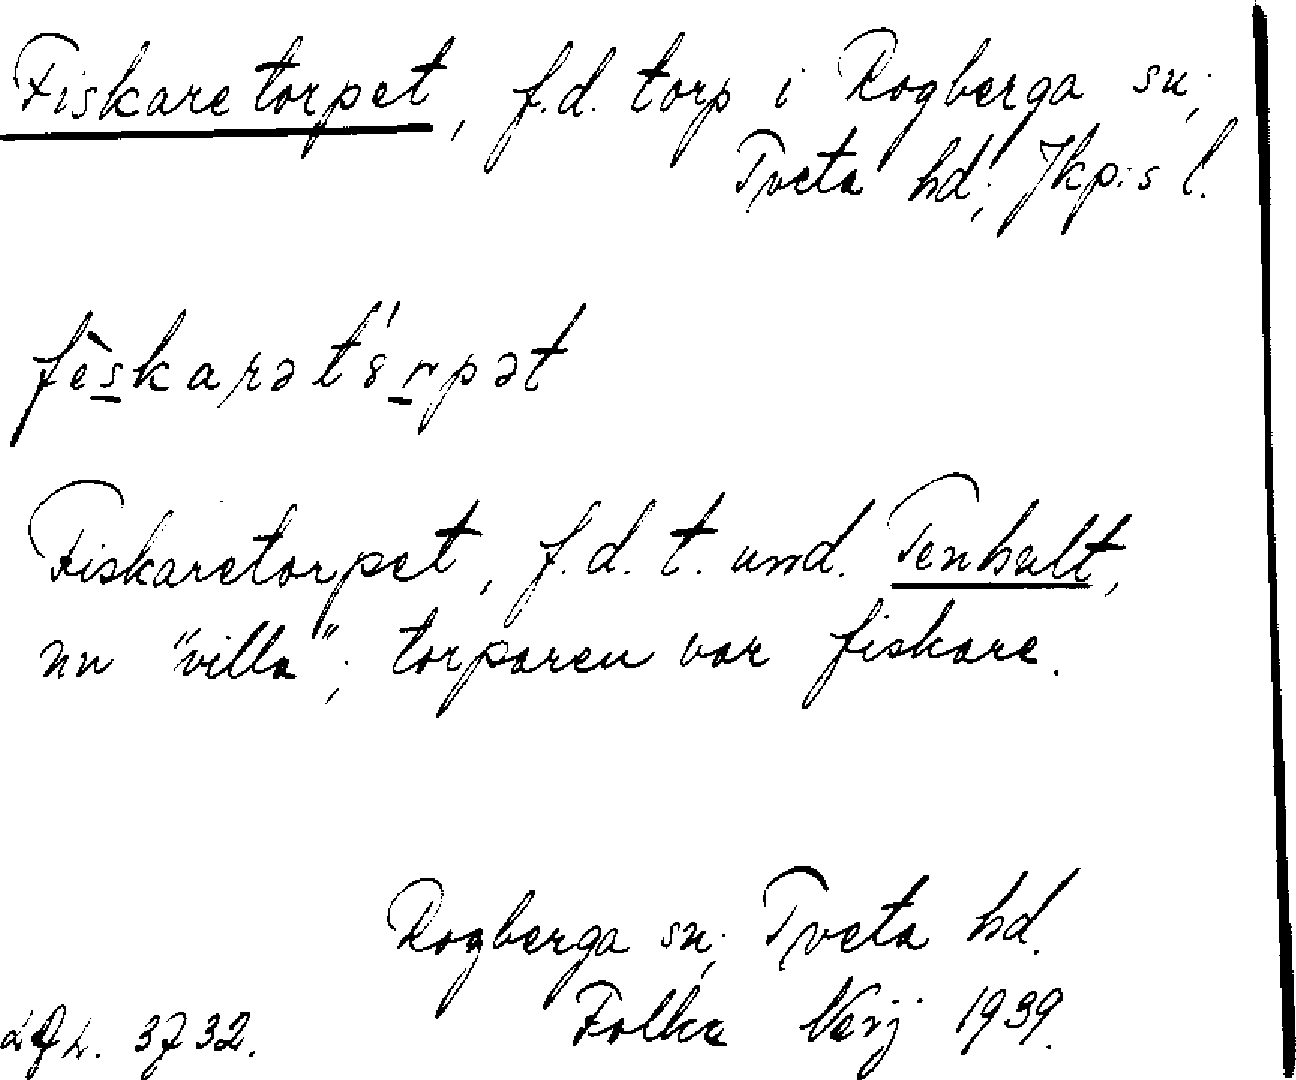 Fiskaretorpet, f.d. torp i Rogberga sn;
Tveta hd; Jkp:s l.
fèskarət'ɞrpət
Fiskaretorpet, f.d. t. und. Tenhult,
nu "villa"; torparen var fiskare.
Rogberga sn; Tveta hd.
Folke Verij 1939.
3732.